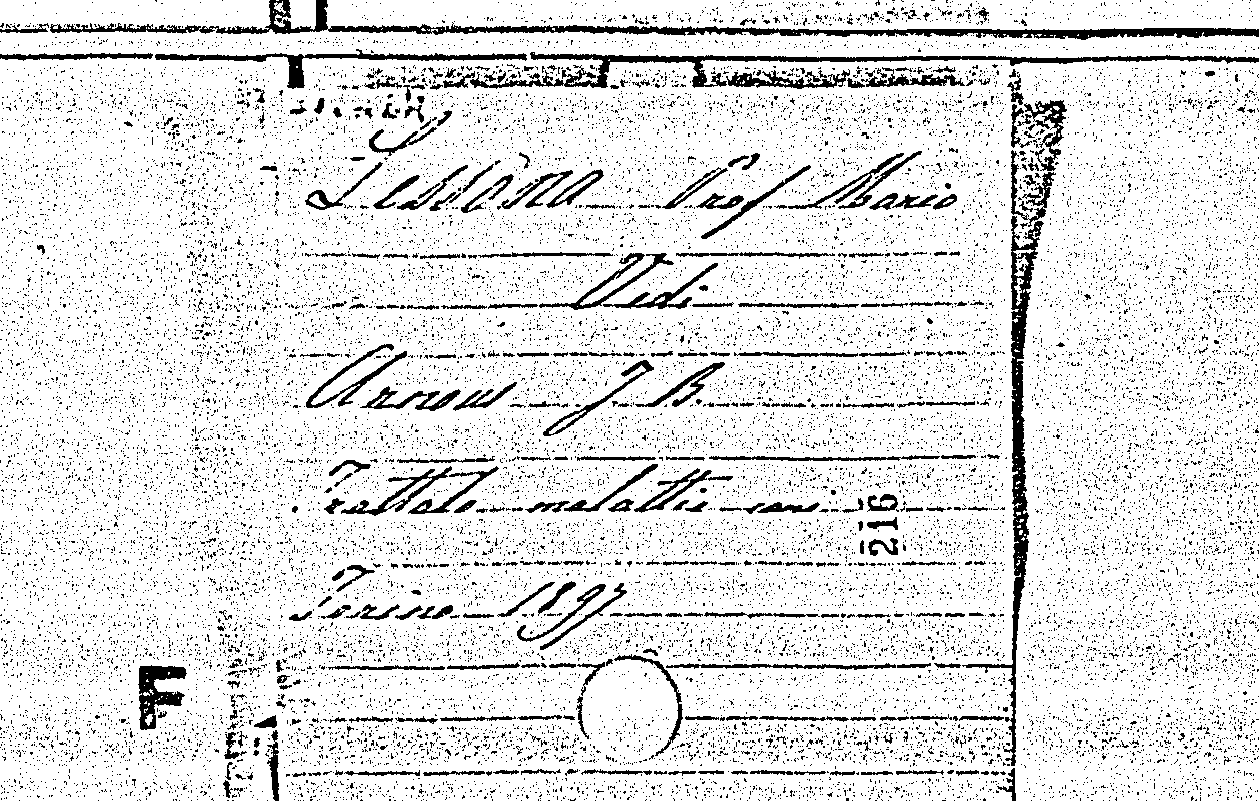 Lessona Prof Mario
Vedi
Arnous J B
Trattato malattie cani
216
Torino 1897
F